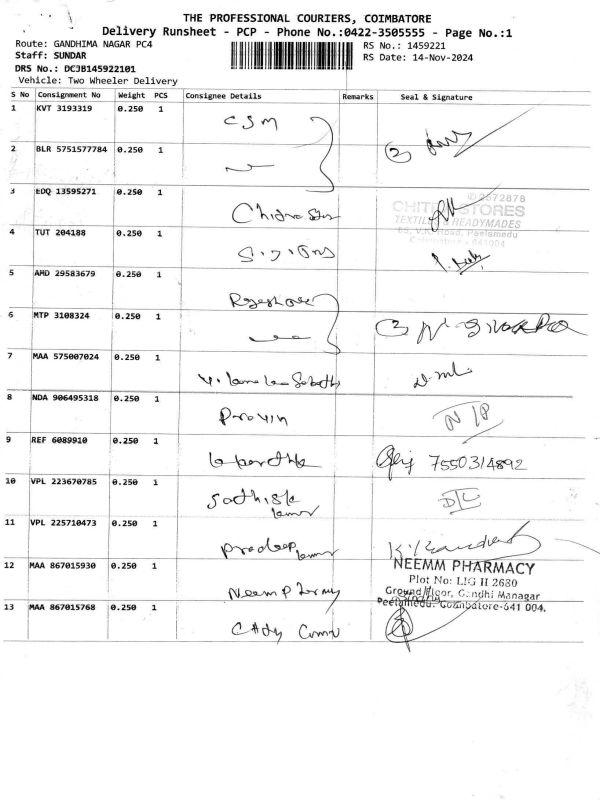 THE PROFESSIONAL COURIERS, COIMBATORE
Delivery Runsheet - PCP - Phone No.:0422-3505555 - Page No.:1
Route: GANDHIMA NAGAR PC4
RS No.: 1459221
Staff: SUNDAR
RS Date: 14-Nov-2024
DRS No.: DCJB145922101
Vehicle: Two Wheeler Delivery
S No Consignment No Weight PCS Consignee Details Remarks Seal & Signature
1 KVT 3193319 0.250 1 CSM
2 BLR 5751577784 0.250 1
3 EDQ 13595271 0.250 1 Chitra
2572878
CHITRA STORES
TEXTILES & READYMADES
Road, Peelamedu
Coimbatore - 641004
4 TUT 204188 0.250 1
5 AMD 29583679 0.250 1
6 MTP 3108324 0.250 1
7 MAA 575007024 0.250 1
8 NDA 906495318 0.250 1 Pravin N/P
9 REF 6089910 0.250 1 7550314892
10 VPL 223670785 0.250 1 Sathish kumar D/L
11 VPL 225710473 0.250 1 Pradeep kumar
12 MAA 867015930 0.250 1 Neem P
NEEMM PHARMACY
Plot No: LIG II 2680
Ground Floor, Gandhi Managar
Peelamedu, Coimbatore-641 004.
13 MAA 867015768 0.250 1